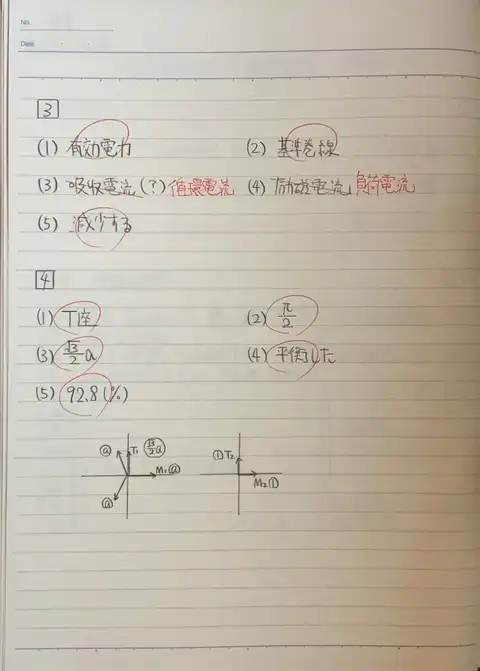 No.
Date
3
(1) 有効電力 (2) 基準巻線
(3) 吸収電流(?) 循環電流 (4) 励磁電流 負荷電流
(5) 減少する
4
(1) T座 (2) π/2
(3) √3/2 a (4) 平衡した
(5) 92.8(%)
ⓐ T₁ (√3/2 a) ① T₂
M₁ⓐ M₂①
ⓐ